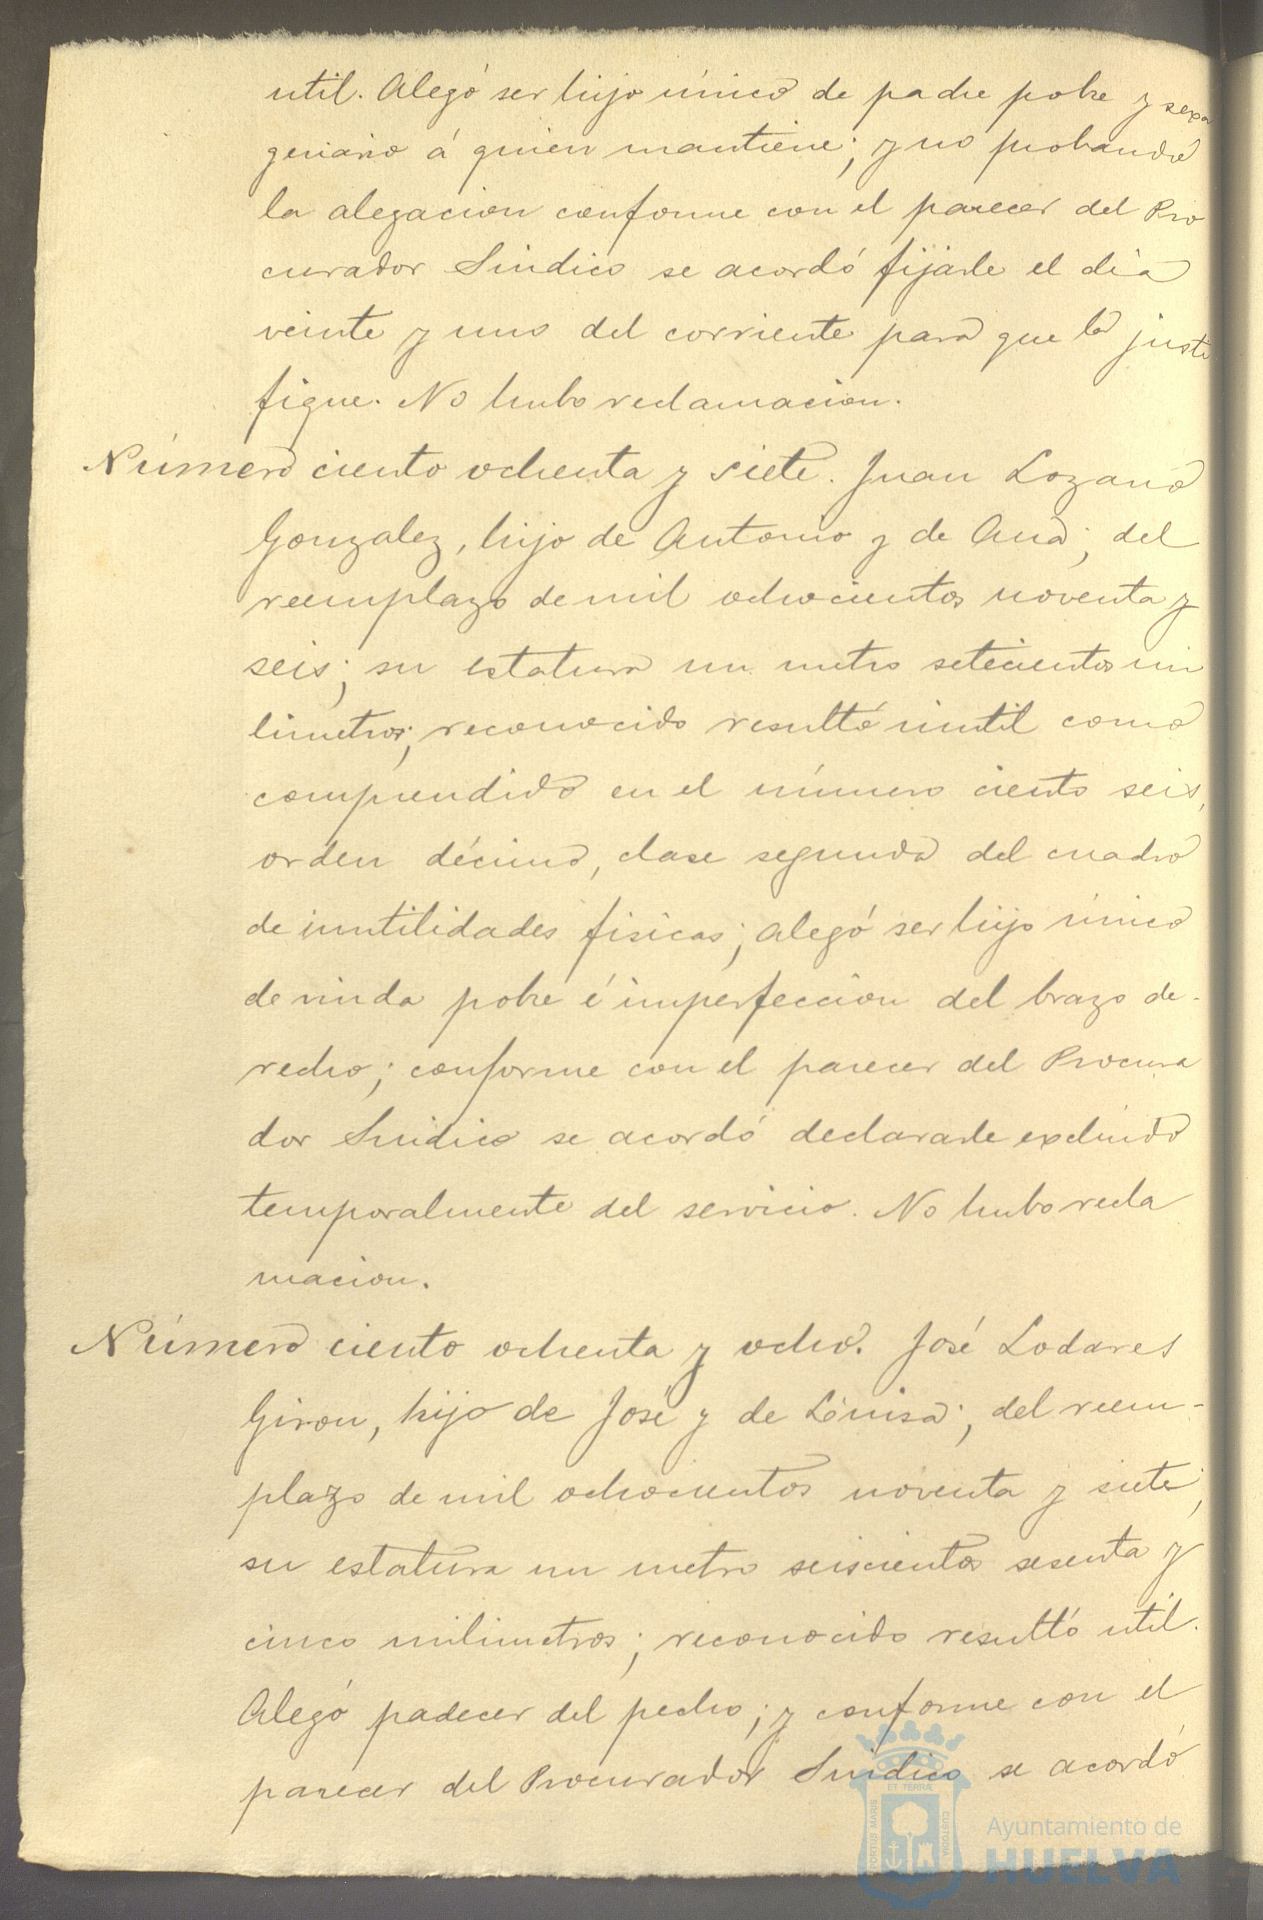 util. Alegó ser hijo único de padre pobre y sexa
genario á quien mantiene; y no probando
la alegacion conforme con el parecer del Pro
curador Sindico se acordó fijarle el dia
veinte y uno del corriente para que la justi
fique. No hubo reclamacion.
Número ciento ochenta y siete. Juan Lozano
Gonzalez, hijo de Antonio y de Ana; del
reemplazo de mil ochocientos noventa y
seis; su estatura un metro setecientos mi
limetros; reconocido resultó inutil como
comprendido en el número ciento seis,
orden décimo, clase segunda del cuadro
de inutilidades fisicas; alegó ser hijo único
de viuda pobre é imperfeccion del brazo de-
recho; conforme con el parecer del Procura
dor Sindico se acordó declararle excluido
temporalmente del servicio. No hubo recla
macion.
Número ciento ochenta y ocho. José Lodares
Giron, hijo de José y de Luisa; del reem-
plazo de mil ochocientos noventa y siete;
su estatura un metro seiscientos sesenta y
cinco milimetros; reconocido resultó util.
Alegó padecer del pecho; y conforme con el
parecer del Procurador Sindico se acordó
PORTUS MARIS
ET TERRÆ
CUSTODIA
Ayuntamiento de
HUELVA